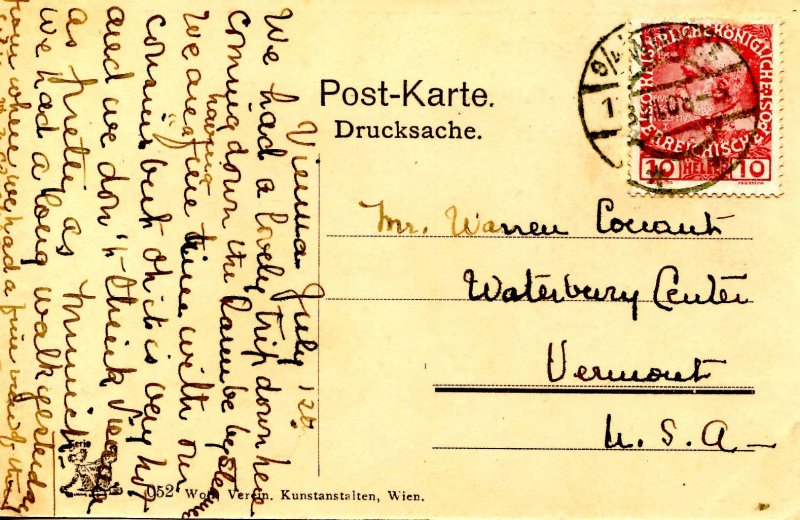 Post-Karte.
Drucksache.
10 HELLER 10
Mr. Warren Conant
Waterbury Center
Vermont
U. S. A
Vienna July 12th
We had a lovely trip down here
Coming down the Danube by steamer
We are having fine time with our
cousins but oh it is very hot
and we don't think Vienna
as pretty as Munich.
We had a long walk yesterday
from where we had a fine view of the
Serie
052
Verein. Kunstanstalten, Wien.